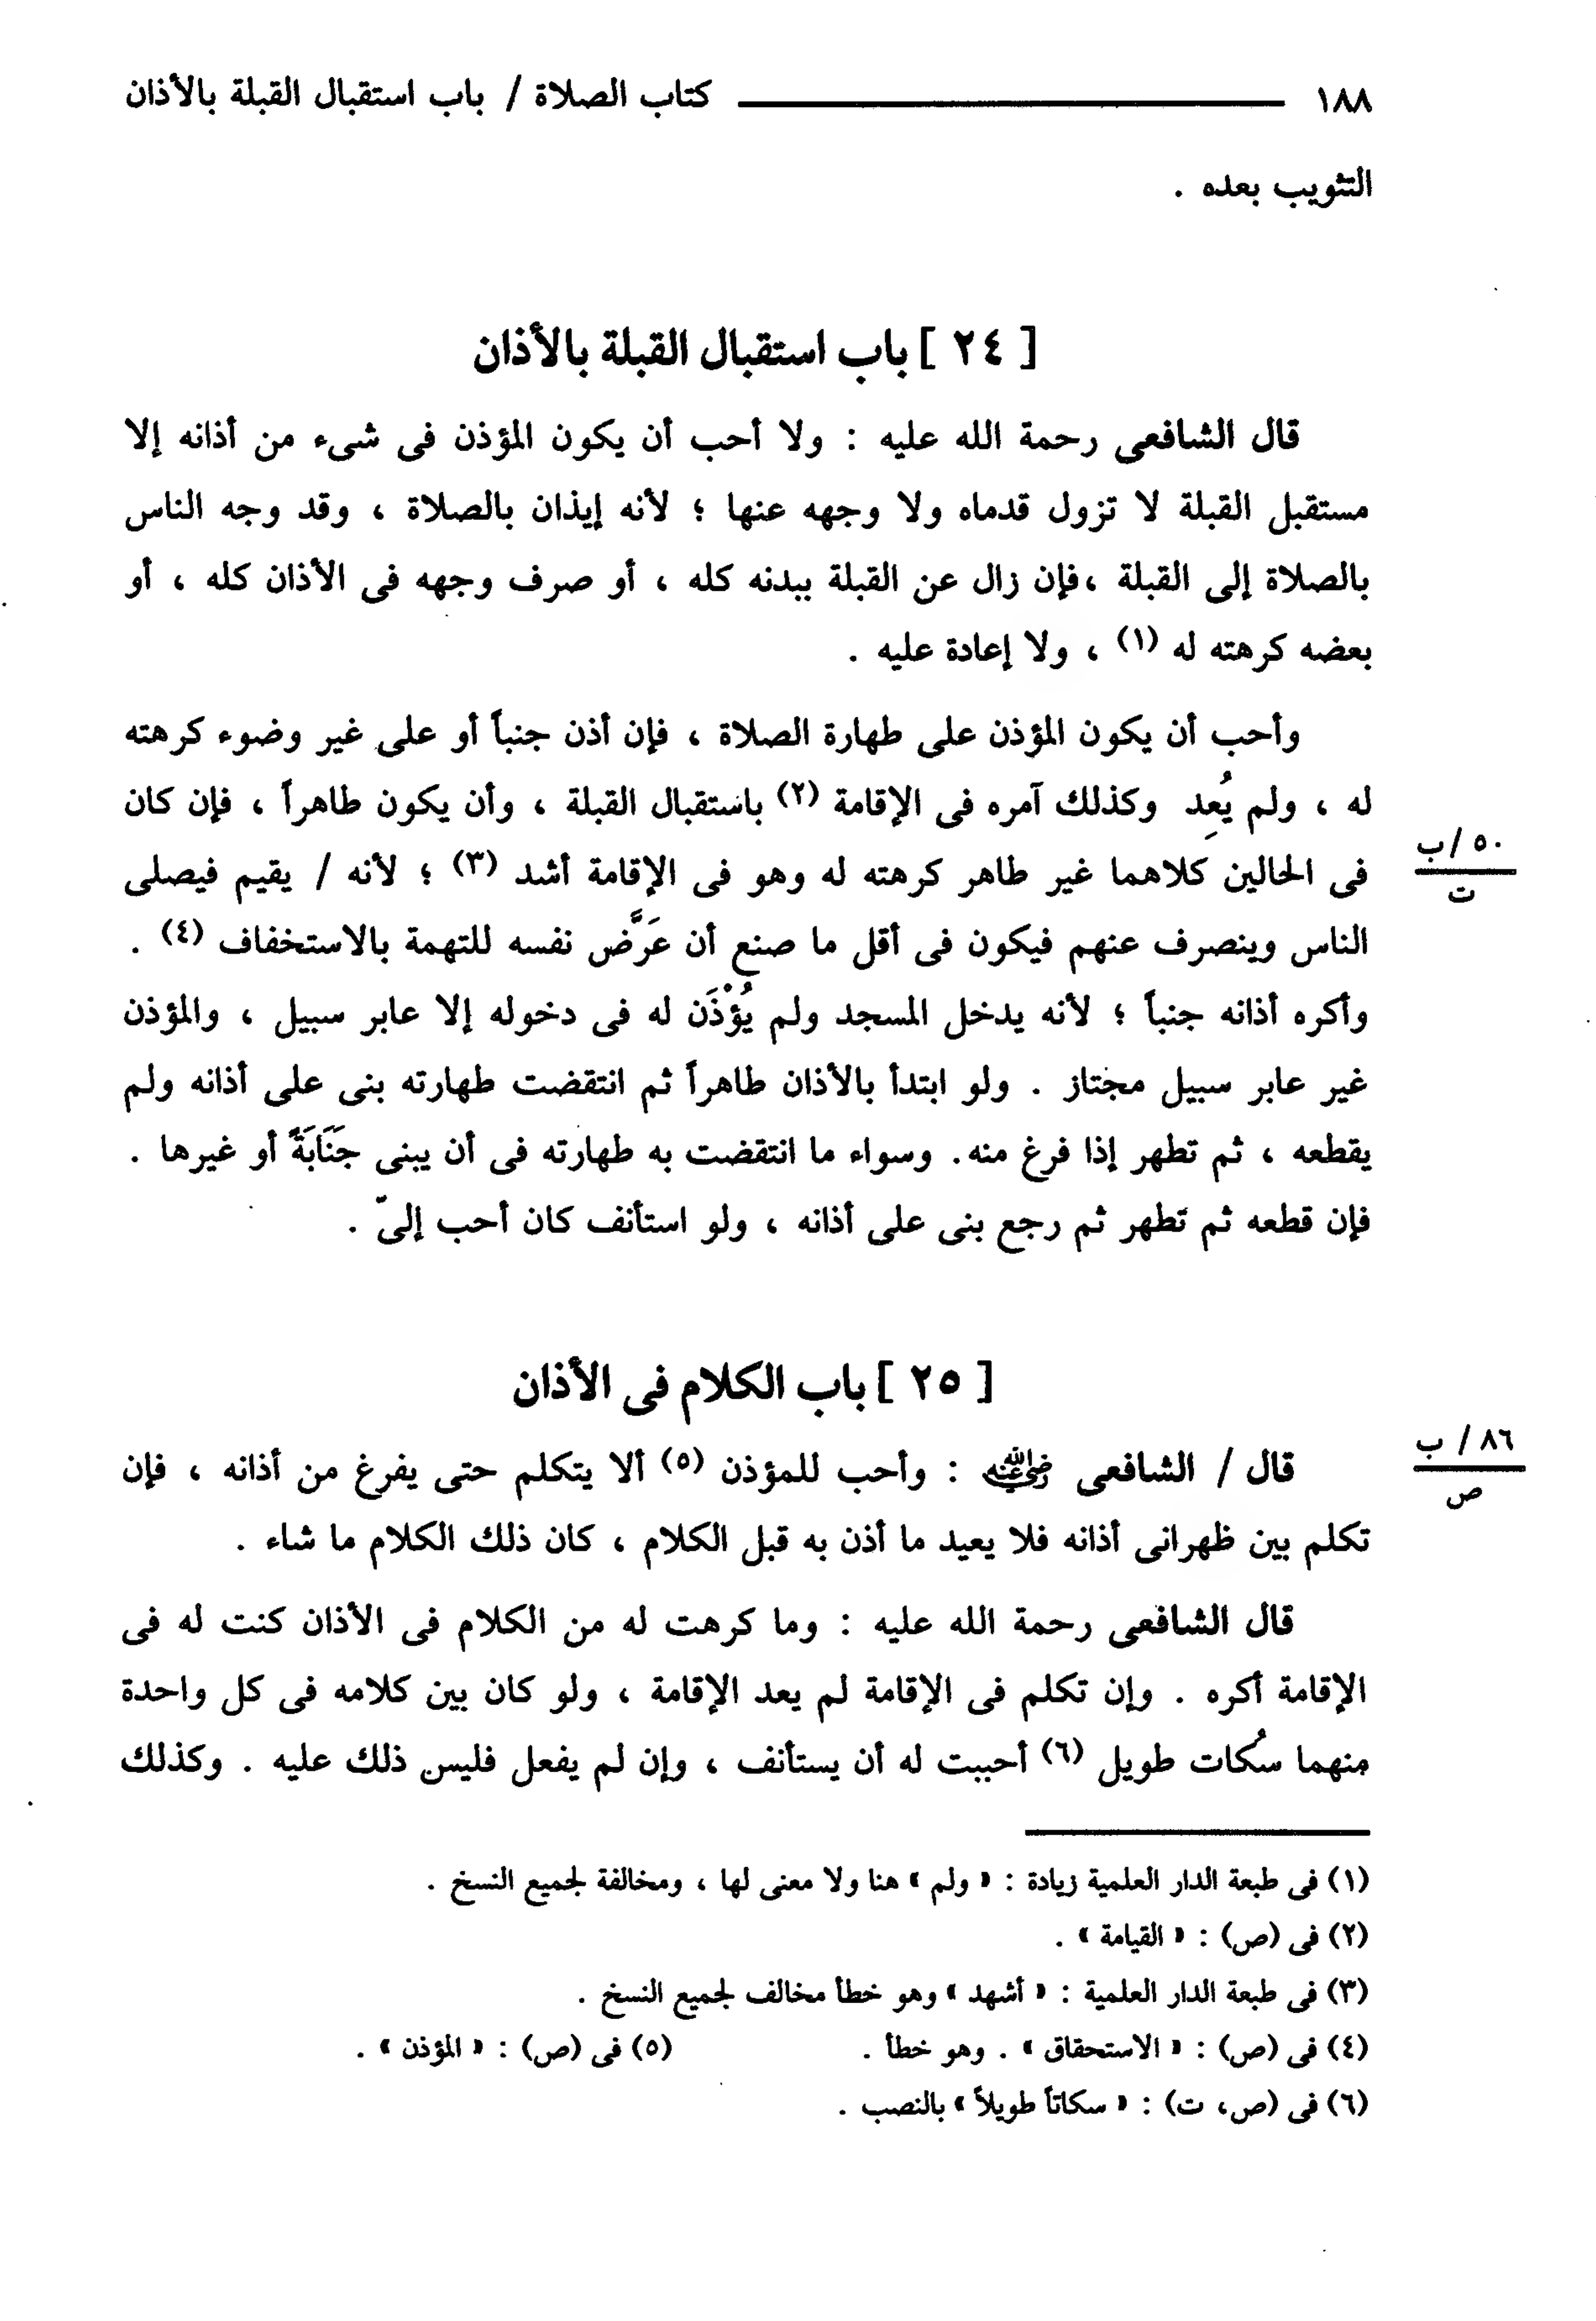 ١٨٨ ــــــــــ كتاب الصلاة / باب استقبال القبلة بالأذان
التثويب بعده .
[ ٢٤ ] باب استقبال القبلة بالأذان
قال الشافعى رحمة الله عليه : ولا أحب أن يكون المؤذن فى شىء من أذانه إلا
مستقبل القبلة لا تزول قدماه ولا وجهه عنها ؛ لأنه إيذان بالصلاة ، وقد وجه الناس
بالصلاة إلى القبلة ،فإن زال عن القبلة ببدنه كله ، أو صرف وجهه فى الأذان كله ، أو
بعضه كرهته له (١) ، ولا إعادة عليه .
وأحب أن يكون المؤذن على طهارة الصلاة ، فإن أذن جنباً أو على غير وضوء كرهته
له ، ولم يُعِد وكذلك آمره فى الإقامة (٢) باستقبال القبلة ، وأن يكون طاهراً ، فإن كان
٥٠ /ب
ت
فى الحالين كلاهما غير طاهر كرهته له وهو فى الإقامة أشد (٣) ؛ لأنه / يقيم فيصلى
الناس وينصرف عنهم فيكون فى أقل ما صنع أن عَرَّض نفسه للتهمة بالاستخفاف (٤) .
وأكره أذانه جنباً ؛ لأنه يدخل المسجد ولم يُؤْذَن له فى دخوله إلا عابر سبيل ، والمؤذن
غير عابر سبيل مجتاز . ولو ابتدأ بالأذان طاهراً ثم انتقضت طهارته بنى على أذانه ولم
يقطعه ، ثم تطهر إذا فرغ منه. وسواء ما انتقضت به طهارته فى أن يبنى جَنَابَةً أو غيرها .
فإن قطعه ثم تطهر ثم رجع بنى على أذانه ، ولو استأنف كان أحب إلىّ .
[ ٢٥ ] باب الكلام فى الأذان
٨٦ / ب
ص
قال / الشافعى رضي الله عنه : وأحب للمؤذن (٥) ألا يتكلم حتى يفرغ من أذانه ، فإن
تكلم بين ظهرانى أذانه فلا يعيد ما أذن به قبل الكلام ، كان ذلك الكلام ما شاء .
قال الشافعى رحمة الله عليه : وما كرهت له من الكلام فى الأذان كنت له فى
الإقامة أكره . وإن تكلم فى الإقامة لم يعد الإقامة ، ولو كان بين كلامه فى كل واحدة
منهما سُكات طويل (٦) أحببت له أن يستأنف ، وإن لم يفعل فليس ذلك عليه . وكذلك
(١) فى طبعة الدار العلمية زيادة : « ولم » هنا ولا معنى لها ، ومخالفة لجميع النسخ .
(٢) فى (ص) : « القيامة » .
(٣) فى طبعة الدار العلمية : « أشهد » وهو خطأ مخالف لجميع النسخ .
(٤) فى (ص) : « الاستحقاق » . وهو خطأ . (٥) فى (ص) : « المؤذن » .
(٦) فى (ص، ت) : « سكاتاً طويلاً » بالنصب .